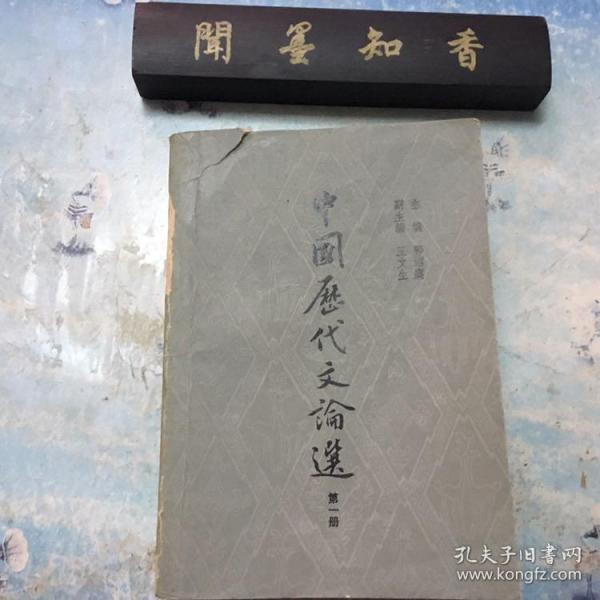 聞墨知香
主編 郭紹虞
副主編 王文生
中國歷代文論選
第一册
孔夫子旧书网
www.kongfz.com